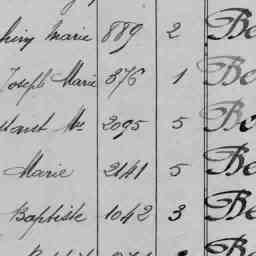 Marie 889 2 Be
Joseph Marie 376 1 Be
2095 5 Be
Marie 2141 5 Be
Baptiste 1042 3 Be